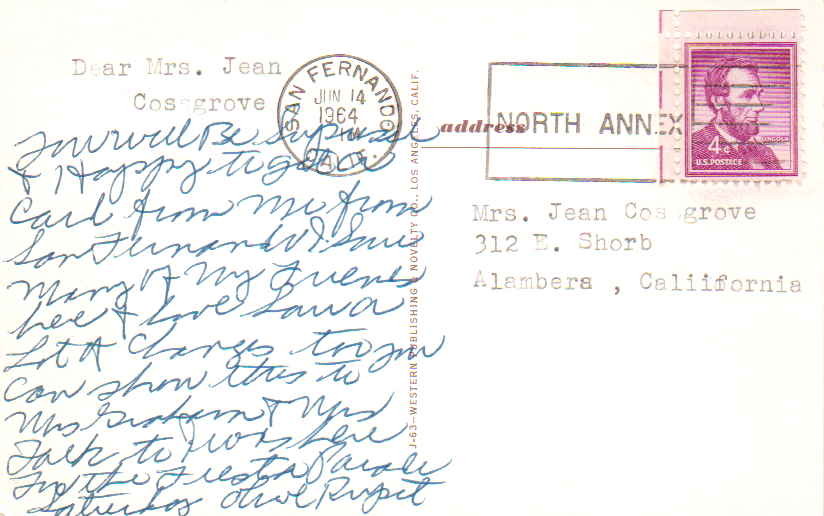 Dear Mrs. Jean
Cosgrove
You will Be Suprise
& Happy to get a
Card from Me from
San Fernando I Saw
Many of My Friends
here & have Saw a
Lot of Changes too you
Can show this to
Mrs Graham & Mrs
Falk to I was here
In the Fiesta Parade
Saturday
SAN FERNANDO
JUN 14
1964
CALIF.
NORTH ANNEX
address
4¢
LINCOLN
U.S. POSTAGE
Mrs. Jean Cosgrove
312 E. Shorb
Alambera , Caliifornia
J-63—WESTERN PUBLISHING & NOVELTY CO., LOS ANGELES, CALIF.